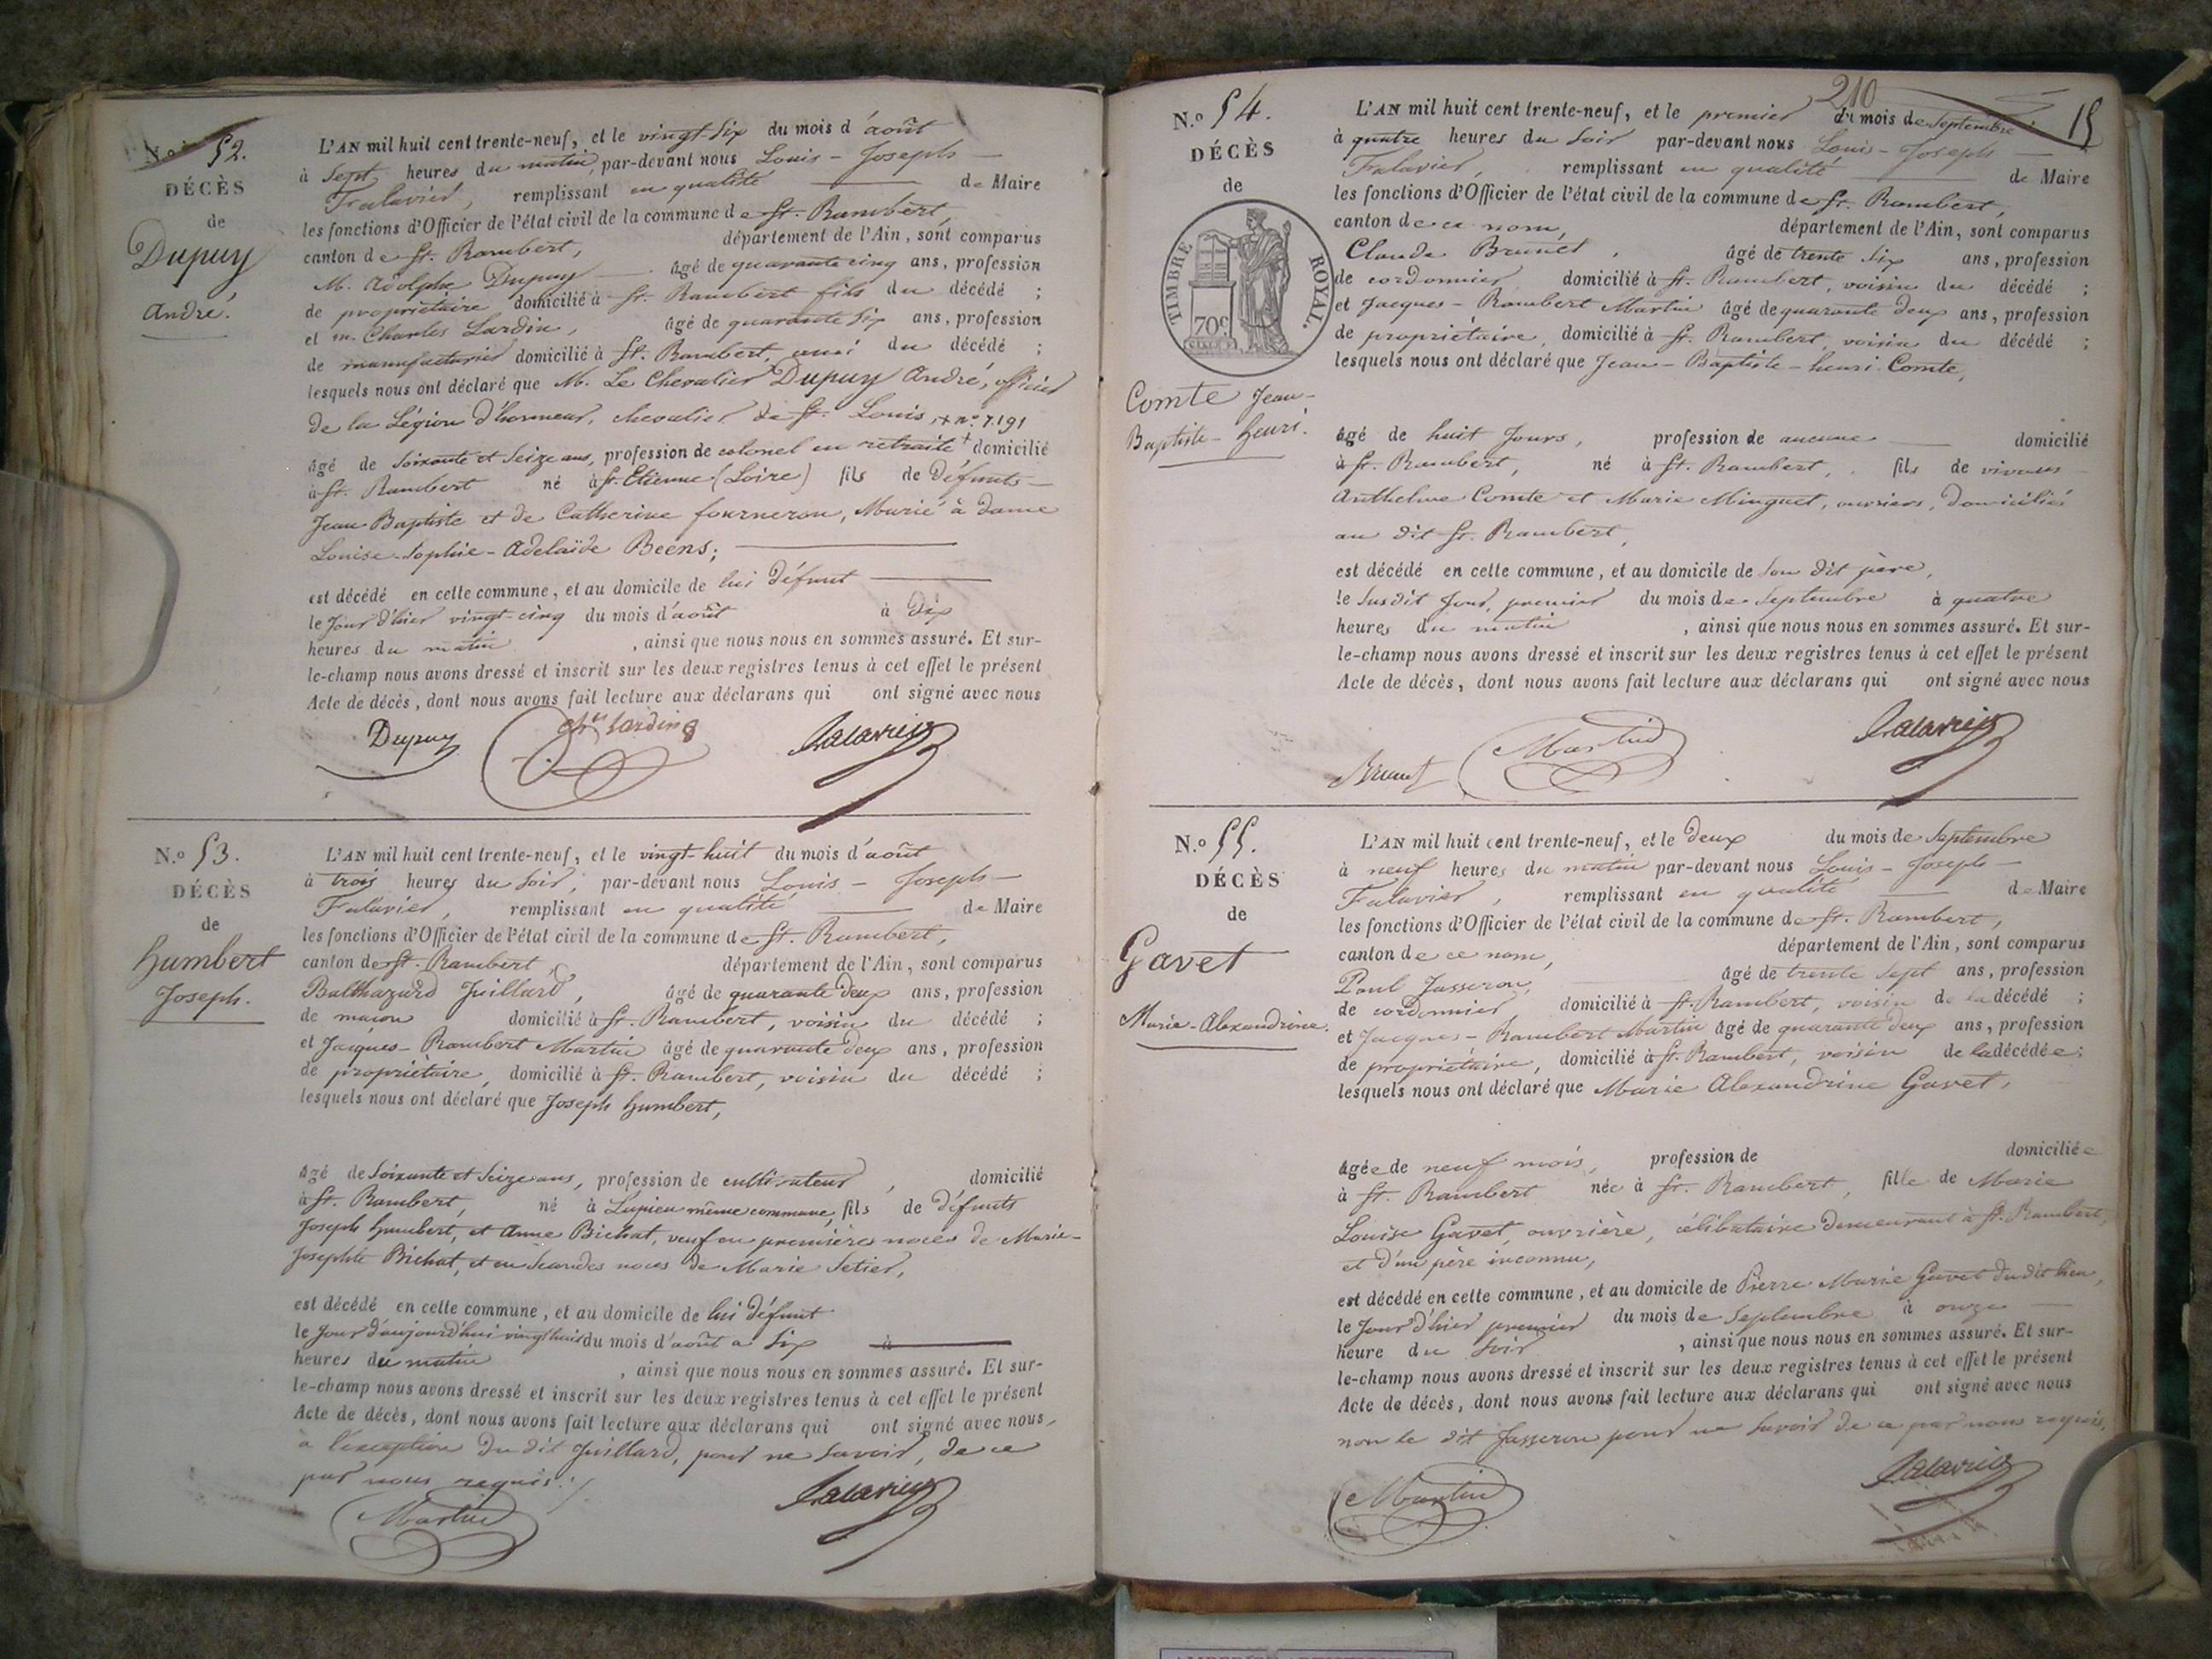 N.o 52.
DÉCÈS
de
Dupuy
André.
L'AN mil huit cent trente-neuf, et le vingt-six du mois d'août
à sept heures du matin, par-devant nous Louis-Joseph
Falavier, remplissant en qualité de Maire
les fonctions d'Officier de l'état civil de la commune de St. Rambert,
canton de St. Rambert, département de l'Ain, sont comparus
M. Adolphe Dupuy âgé de quarante cinq ans, profession
de propriétaire domicilié à St. Rambert fils du décédé ;
et m. Charles Sardin, âgé de quarante six ans, profession
de manufacturier domicilié à St. Rambert, ami du décédé ;
lesquels nous ont déclaré que M. Le Chevalier Dupuy André, officier
de la Légion d'honneur, chevalier de St. Louis, + n.o 7.191
âgé de soixante et seize ans, profession de colonel en retraite + domicilié
à St. Rambert né à St. Etienne (Loire) fils de défunts
Jean Baptiste et de Catherine fourneron, Marié à dame
Louise-Sophie-Adelaïde Beens;
est décédé en cette commune, et au domicile de lui défunt
le jour d'hier vingt-cinq du mois d'août à dix
heures du matin, ainsi que nous nous en sommes assuré. Et sur-
le-champ nous avons dressé et inscrit sur les deux registres tenus à cet effet le présent
Acte de décès, dont nous avons fait lecture aux déclarans qui ont signé avec nous
Dupuy Ch.es Sardin Falavier
N.o 53.
DÉCÈS
de
humbert
Joseph.
L'AN mil huit cent trente-neuf, et le vingt-huit du mois d'août
à trois heures du soir, par-devant nous Louis-Joseph
Falavier, remplissant en qualité de Maire
les fonctions d'Officier de l'état civil de la commune de St. Rambert,
canton de St. Rambert, département de l'Ain, sont comparus
Balthazard Juillard, âgé de quarante deux ans, profession
de maçon domicilié à St. Rambert, voisin du décédé ;
et Jacques-Rambert Martin âgé de quarante deux ans, profession
de propriétaire, domicilié à St. Rambert, voisin du décédé ;
lesquels nous ont déclaré que Joseph humbert,
âgé de soixante et seize ans, profession de cultivateur, domicilié
à St. Rambert, né à Lupieu même commune, fils de défunts
Joseph humbert, et Anne Bichat, veuf en premières noces de Marie-
Josephte Bichat, et en secondes noces de Marie Setier,
est décédé en cette commune, et au domicile de lui défunt
le jour d'aujourd'hui vingt huit du mois d'août a six à
heures du matin, ainsi que nous nous en sommes assuré. Et sur-
le-champ nous avons dressé et inscrit sur les deux registres tenus à cet effet le présent
Acte de décès, dont nous avons fait lecture aux déclarans qui ont signé avec nous,
à l'exception du dit Juillard, pour ne savoir, de ce
par nous requis./
Martin Falavier
210
15
N.o 54.
DÉCÈS
de
TIMBRE ROYAL.
70c
Comte Jean-
Baptiste-henri.
L'AN mil huit cent trente-neuf, et le premier du mois de Septembre
à quatre heures du soir par-devant nous Louis-Joseph
Falavier, remplissant en qualité de Maire
les fonctions d'Officier de l'état civil de la commune de St. Rambert,
canton de ce nom, département de l'Ain, sont comparus
Claude Brunet, âgé de trente six ans, profession
de cordonnier domicilié à St. Rambert, voisin du décédé ;
et Jacques-Rambert Martin âgé de quarante deux ans, profession
de propriétaire, domicilié à St. Rambert, voisin du décédé ;
lesquels nous ont déclaré que Jean-Baptiste-henri Comte,
âgé de huit jours, profession de aucune domicilié
à St. Rambert, né à St. Rambert, fils de vivans
Anthelme Comte et Marie Minguet, ouvriers, domiciliés
au dit St. Rambert,
est décédé en cette commune, et au domicile de son dit père,
le susdit jour, premier du mois de Septembre à quatre
heures du matin, ainsi que nous nous en sommes assuré. Et sur-
le-champ nous avons dressé et inscrit sur les deux registres tenus à cet effet le présent
Acte de décès, dont nous avons fait lecture aux déclarans qui ont signé avec nous
Brunet Martin Falavier
N.o 55.
DÉCÈS
de
Gavet
Marie-Alexandrine.
L'AN mil huit cent trente-neuf, et le deux du mois de Septembre
à neuf heures du matin par-devant nous Louis-Joseph
Falavier, remplissant en qualité de Maire
les fonctions d'Officier de l'état civil de la commune de St. Rambert,
canton de ce nom, département de l'Ain, sont comparus
Paul Jasseron, âgé de trente sept ans, profession
de cordonnier, domicilié à St. Rambert, voisin de la décédé ;
et Jacques-Rambert Martin âgé de quarante deux ans, profession
de propriétaire, domicilié à St. Rambert, voisin de la décédée ;
lesquels nous ont déclaré que Marie Alexandrine Gavet,
âgée de neuf mois, profession de domiciliée
à St. Rambert née à St. Rambert, fille de Marie
Louise Gavet, ouvrière, célibataire demeurant à St. Rambert,
et d'un père inconnu,
est décédé en cette commune, et au domicile de Pierre Marie Gavet du dit lieu,
le jour d'hier premier du mois de Septembre à onze
heure du soir, ainsi que nous nous en sommes assuré. Et sur-
le-champ nous avons dressé et inscrit sur les deux registres tenus à cet effet le présent
Acte de décès, dont nous avons fait lecture aux déclarans qui ont signé avec nous
non le dit Jasseron pour ne savoir de ce par nous requis.
Martin Falavier